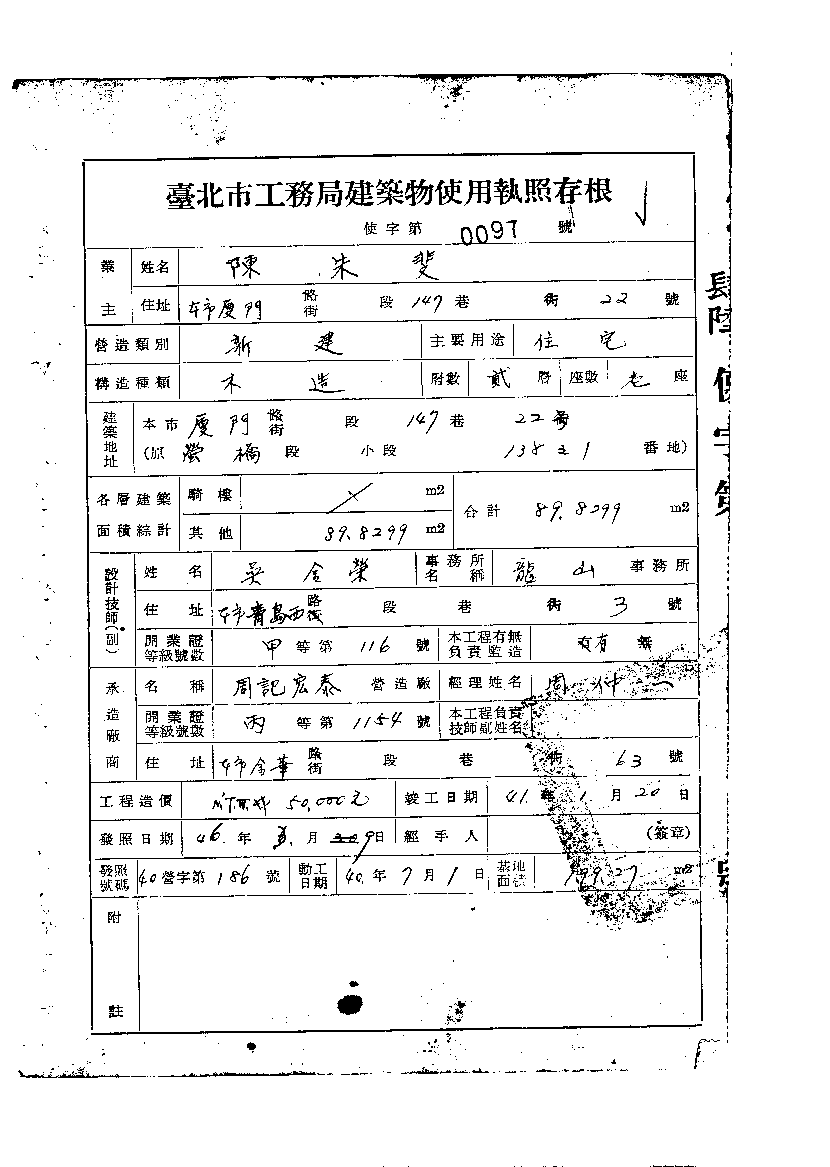 臺北市工務局建築物使用執照存根
使字第 0097 號
業主 姓名 陳朱斐
住址 本市廈門 路街 段 147 巷 街 22 號
營造類別 新建 主要用途 住宅
構造種類 木造 層數 貳 層 座數 座
建築地址 本市 廈門 路街 段 147 巷 22 號
(原 螢橋 段 小段 138-21 番地)
各層建築面積綜計 騎樓 m2 合計 89.8299 m2
其他 89.8299 m2
設計技師(副) 姓名 吳金榮 事務所名稱 龍山 事務所
住址 本市青島西 路街 段 巷 街 3 號
開業證等級號數 甲 等第 116 號 本工程有無負責監造 有 無
承造廠商 名稱 周記宏泰 營造廠 經理姓名 周
開業證等級號數 丙 等第 1154 號 本工程負責技師副姓名
住址 本市金華 路街 段 巷 街 63 號
工程造價 50,000元 竣工日期 41. 年 1 月 20 日
發照日期 46. 年 月 9 日 經手人 (簽章)
發照號碼 40 營字第 186 號 動工日期 40. 年 7 月 1 日 基地面積 199.27 m2
附註
肆陸 使字第 號